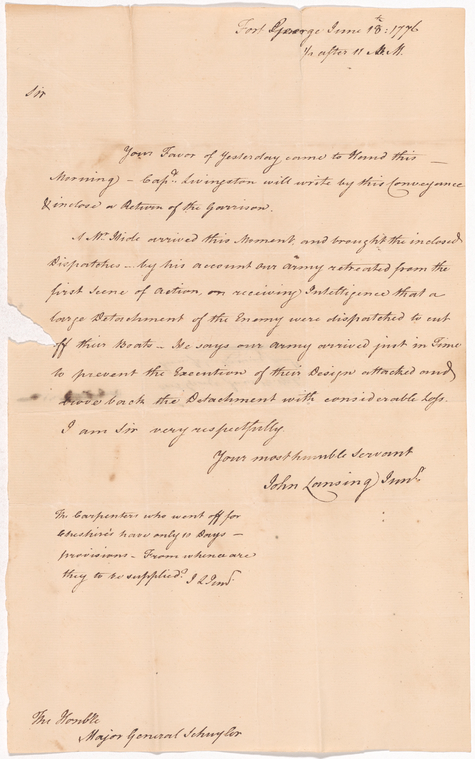 Fort George June 18th: 1776
½ after 11 A.M.
Sir
Your Favor of Yesterday came to Hand this —
Morning — Capt. Livingston will write by this Conveyance
& inclose a Return of the Garrison.
A Mr. Hide arrived this Moment and brought the inclosed
Dispatches — by his account our Army retreated from the
first Scene of Action, on receiving Intelligence that a
large Detachment of the Enemy were dispatched to cut
off their Boats — He says our army arrived just in Time
to prevent the Execution of their Design attacked and
drove back the Detachment with considerable Loss.
I am Sir very respectfully.
Your most humble Servant
John Lansing Junr.
The Carpenters who went off for
Cheshire's have only 10 Days —
provisions — From whence are
they to be supplied? J L Junr.
The Honble
Major General Schuyler